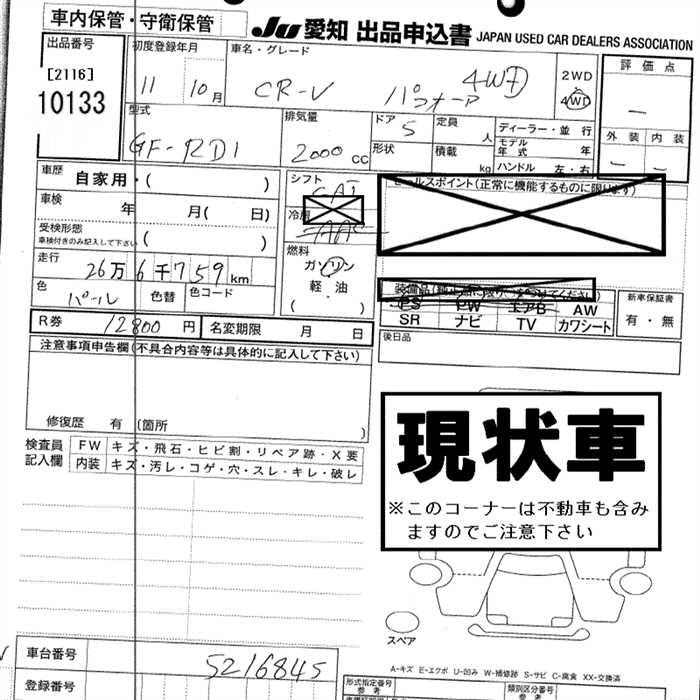 車内保管・守衛保管
JU 愛知 出品申込書 JAPAN USED CAR DEALERS ASSOCIATION
出品番号
[2116]
10133
初度登録年月
11 10月
車名・グレード
CR-V 4WD
2WD
4WD
評価点
外装 内装
型式
GF-RD1
排気量
2000 CC
ドア 5
形状
定員 人
積載 kg
ディーラー・並行
モデル年式 年
ハンドル 左・右
車歴
自家用・( )
車検
年 月( 日)
受検形態
車検付きのみ記入して下さい ( )
走行
26万6千759km
色
パール
色替
色コード
シフト
CAT
冷房
AAC
燃料
ガソリン
軽油
( ・ )
セールスポイント(正常に機能するものに限ります)
PS PW エアB AW
SR ナビ TV カワシート
新車保証書
有・無
後日品
R券 12800 円
名変期限 月 日
注意事項申告欄(不具合内容等は具体的に記入して下さい)
修復歴 有 (箇所 )
検査員
記入欄
FW キズ・飛石・ヒビ割・リペア跡・X要
内装 キズ・汚レ・コゲ・穴・スレ・キレ・破レ
現状車
※このコーナーは不動車も含み
ますのでご注意下さい
スペア
A-キズ E-エクボ U-凹み W-補修跡 S-サビ C-腐食 XX-交換済
車台番号
5216845
登録番号
形式指定番号
参考
類別区分番号
参考